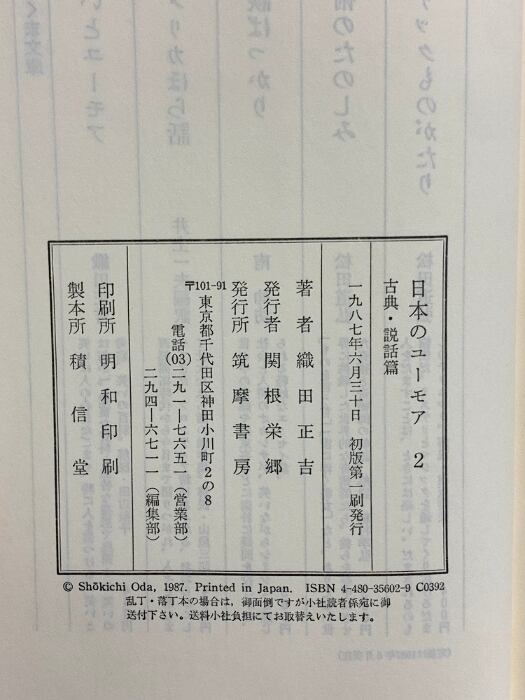 日本のユーモア 2
古典・説話篇
一九八七年六月三十日 初版第一刷発行
著者 織田正吉
発行者 関根栄郷
発行所 筑摩書房
〒101-91
東京都千代田区神田小川町2の8
電話(03)二九一―七六五一(営業部)
二九四―六七一一(編集部)
印刷所 明和印刷
製本所 積信堂
© Shōkichi Oda, 1987. Printed in Japan. ISBN 4-480-35602-9 C0392
乱丁・落丁本の場合は，御面倒ですが小社読者係宛に御
送付下さい。送料小社負担にてお取替えいたします。